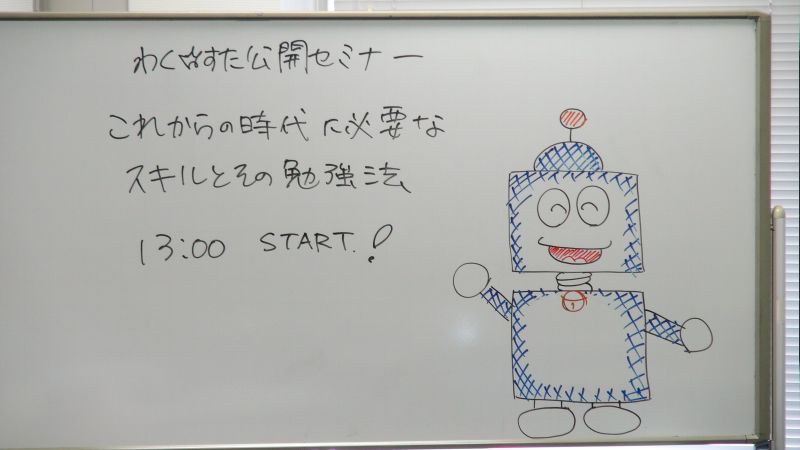 わく☆すた公開セミナー
これからの時代に必要な
スキルとその勉強法
13:00 START!